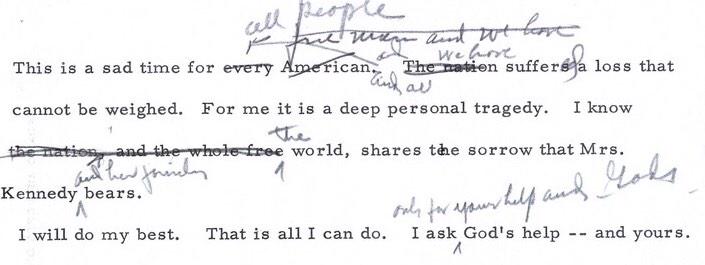 all people
free men and we have
This is a sad time for every American. The nation suffers a loss that
we have
and all
cannot be weighed. For me it is a deep personal tragedy. I know
the
the nation, and the whole free world, shares the sorrow that Mrs.
and her family
Kennedy bears.
ask for your help and God's
I will do my best. That is all I can do. I ask God's help -- and yours.